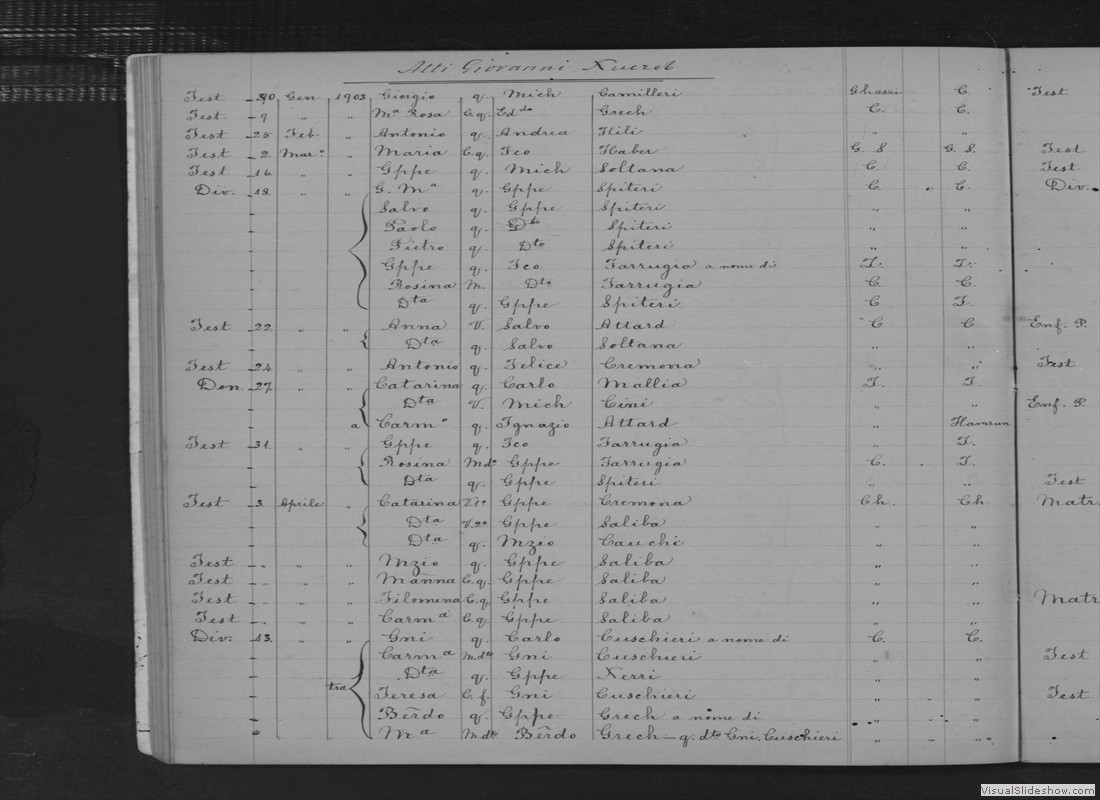 Atti Giovanni Xuereb
Test 30 Gen 1903 Giorgio q. Mich Camilleri Ghasri C. Test
Test 9 " " Ma Rosa C.q. Eddo Grech C. C.
Test 25 Feb " Antonio q. Andrea Hili " "
Test 2 Mar.o " Maria C.q. Fco Haber G. S. G. S. Test
Test 16 " " Gppe q. Mich Soltana C. C. Test
Div. 18 " " G. Ma q. Gppe Spiteri C. C. Div.
Salvo q. Gppe Spiteri " "
Paolo q. Dto Spiteri " "
Pietro q. Dto Spiteri " "
Gppe q. Fco Farrugia a nome di T. T.
Rosina M. Dto Farrugia C. C.
Dta q. Gppe Spiteri C. T.
Test 22 " " Anna V. Salvo Attard C C Enf. P.
Dta q. Salvo Soltana " "
Test 24 " " Antonio q. Felice Cremona " " Test
Don. 27 " " Catarina q. Carlo Mallia T. T.
Dta V. Mich Cini " " Enf. P.
a Carmo q. Ignazio Attard " Hamrun
Test 31 " " Gppe q. Fco Farrugia " T.
Rosina Mdo Gppe Farrugia C. T.
Dta q. Gppe Spiteri " " Test
Test 3 Aprile " Catarina V.1o Gppe Cremona Ch. Ch. Matr.
Dta V.2o Gppe Saliba " "
Dta q. Mzio Cauchi " "
Test " " " Mzio q. Gppe Saliba " "
Test " " " Manna C.q. Gppe Saliba " "
Test " " " Filomena C.q. Gppe Saliba " " Matr
Test " " " Carma C.q. Gppe Saliba " "
Div. 13 " " Gni q. Carlo Cuschieri a nome di C. C.
Carma M.dto Gni Cuschieri " " Test
Dta q. Gppe Xerri " "
tra Teresa C.f. Gni Cuschieri " " Test
Berdo q. Gppe Grech a nome di " "
Ma M.dto Berdo Grech - q. dto Gni. Cuschieri " "
VisualSlideshow.com